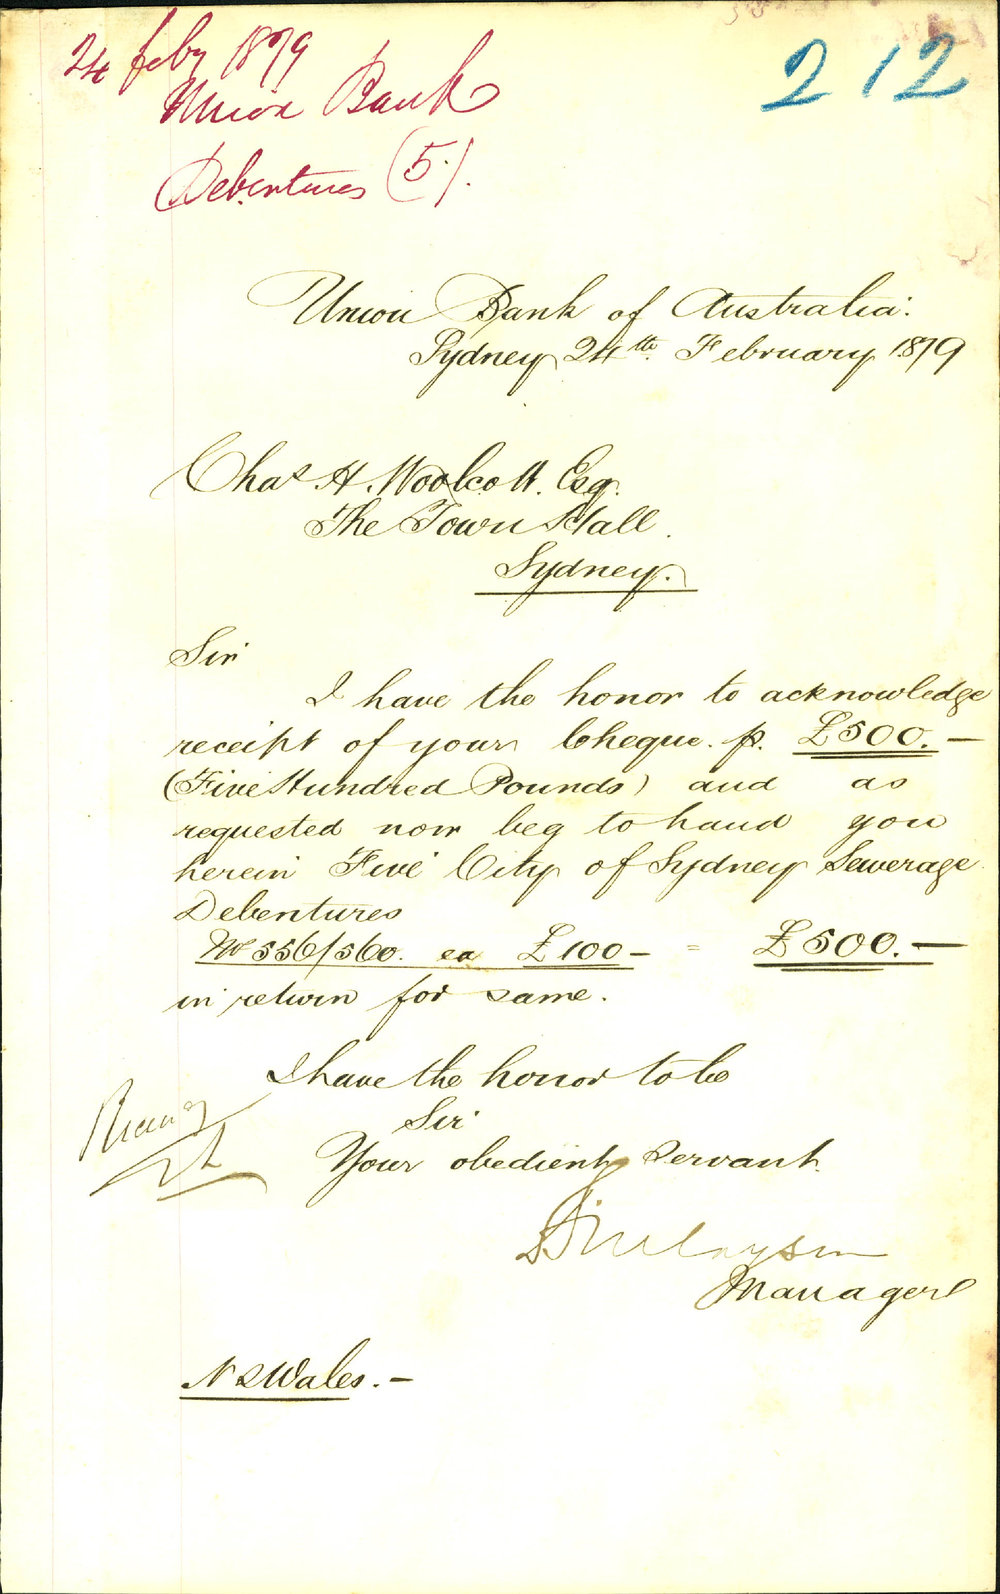 24 feby 1879
Union Bank
Debentures (5).
212
Union Bank of Australia.
Sydney 24th. February 1879
Chas. H. Woolcott. Esq.
The Town Hall.
Sydney.
Sir
I have the honor to acknowledge
receipt of your Cheque. p. £500.—
(Five Hundred Pounds) and as
requested now beg to hand you
herein Five City of Sydney Sewerage
Debentures
No 556/560. ea £100– = £500.—
in return for same.
I have the honor to be
Sir
Your obedient Servant.
Finlayson
Manager
N S Wales.–